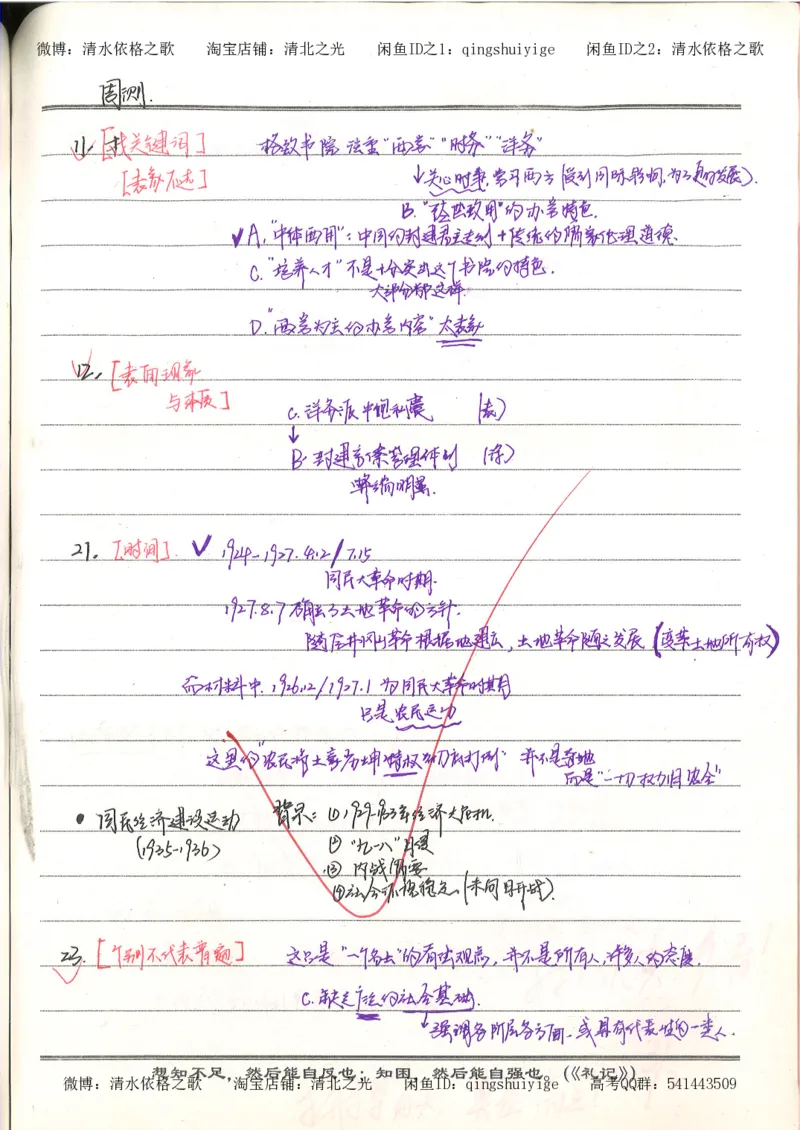 微博：清水依格之歌 淘宝店铺：清北之光 闲鱼ID之1：qingshuiyige 闲鱼ID之2：清水依格之歌
周测.
11. [找关键词] 格致书院 注重“西学”“时务”“洋务”
[表象不选] ↓关心时事，学习西方(受到国际影响，为了更好发展).
B.“经世致用”的办学特色.
✓A.“中体西用”：中国的封建君主专制+传统的儒家伦理道德.
C.“培养人才”不是十分突出这个书院的特色.
大部分都这样
D.“西学为主的办学内容”太表象
12. [表面现象
与本质]
C.洋务派中饱私囊 (表)
↓
B.封建官僚管理体制 (深)
弊端明显.
21. [时间] ✓ 1924-1927.4.12/7.15
国民大革命时期.
1927.8.7确定了土地革命的方针.
随后井冈山革命根据地建立，土地革命随之发展(变革土地所有权)
而材料中.1926.12/1927.1 为国民大革命时期
只是农民运动
这里的“农民将土豪劣绅特权 打倒” 并不是夺地
而是“一切权力归农会”
• 国民经济建设运动 背景：① 1929-1933年经济大危机.
(1935-1936) ② “九一八”日侵
③ 内战需要
④ 社会环境稳定.(未向日开战).
23. [个别不代表普遍] 这只是“一个名士”的看法观点，并不是所有人，许多人的态度.
C.缺乏广泛的社会基础.
↓强调各阶层各方面，或具有代表性的一类人.
想知不足，然后能自反也；知困，然后能自强也。(《礼记》)
微博：清水依格之歌 淘宝店铺：清北之光 闲鱼ID：qingshuiyige 高考QQ群：541443509